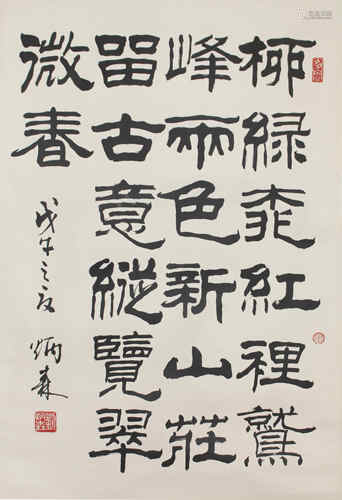 柳綠桃紅裡鷲
峰雨色新山莊
留古意縱覽翠
微春
戊午之夏 炳森